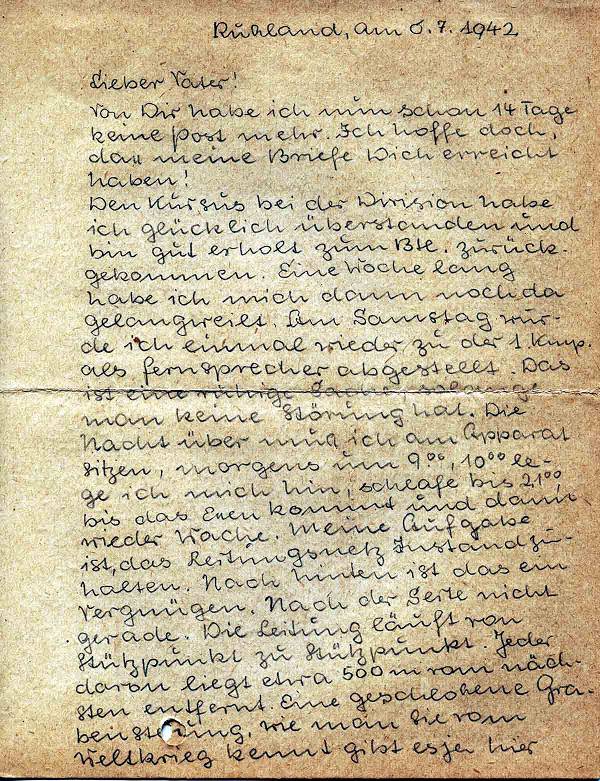 Rußland, am 6.7.1942
Lieber Vater!
Von Dir habe ich nun schon 14 Tage
keine Post mehr. Ich hoffe doch,
daß meine Briefe Dich erreicht
haben!
Den Kursus bei der Division habe
ich glücklich überstanden und
bin gut erholt zum Btl. zurück-
gekommen. Eine Woche lang
habe ich mich dann noch da
gelangweilt. Am Samstag wur-
de ich einmal wieder zu der 1. Kmp.
als Fernsprecher abgestellt. Das
ist eine ruhige Sache, solange
man keine Störung hat. Die
Nacht über muß ich am Apparat
sitzen, morgens um 9⁰⁰, 10⁰⁰ le-
ge ich mich hin, schlafe bis 21⁰⁰
bis das Essen kommt und dann
wieder Wache. Meine Aufgabe
ist, das Leitungsnetz Instandzu-
halten. Nach hinten ist das ein
Vergnügen. Nach der Seite nicht
gerade. Die Leitung läuft von
Stützpunkt zu Stützpunkt. Jeder
davon liegt etwa 500 m vom näch-
sten entfernt. Eine geschloßene Gra-
benstellung, wie man sie vom
Weltkrieg kennt gibt es ja hier